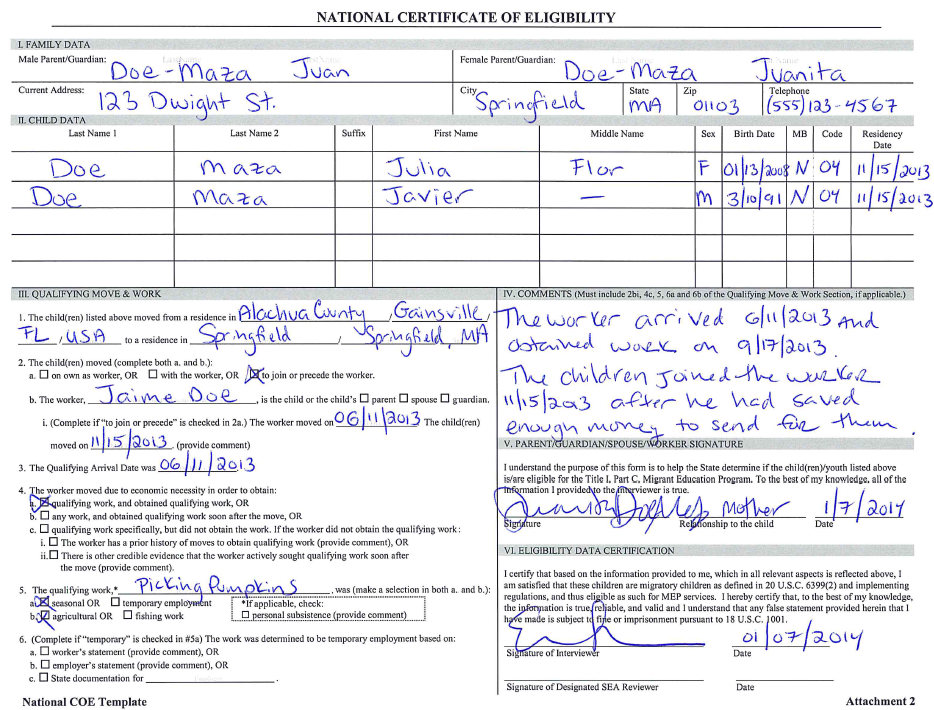 NATIONAL CERTIFICATE OF ELIGIBILITY
I. FAMILY DATA
Male Parent/Guardian: Doe-Maza Juan Female Parent/Guardian: Doe-Maza Juanita
Current Address: 123 Dwight St. City Springfield State MA Zip 01103 Telephone (555)123-4567
II. CHILD DATA
Last Name 1 Last Name 2 Suffix First Name Middle Name Sex Birth Date MB Code Residency Date
Doe Maza Julia Flor F 01/13/2008 N 04 11/15/2013
Doe Maza Javier — M 3/10/91 N 04 11/15/2013
III. QUALIFYING MOVE & WORK
1. The child(ren) listed above moved from a residence in Alachua County / Gainsville /
FL / USA to a residence in Springfield / Springfield, MA
2. The child(ren) moved (complete both a. and b.):
a. ☐ on own as worker, OR ☐ with the worker, OR ☒ to join or precede the worker.
b. The worker, Jaime Doe, is the child or the child's ☐ parent ☐ spouse ☐ guardian.
i. (Complete if "to join or precede" is checked in 2a.) The worker moved on 06/11/2013 The child(ren)
moved on 11/15/2013. (provide comment)
3. The Qualifying Arrival Date was 06/11/2013
4. The worker moved due to economic necessity in order to obtain:
a. ☒ qualifying work, and obtained qualifying work, OR
b. ☐ any work, and obtained qualifying work soon after the move, OR
c. ☐ qualifying work specifically, but did not obtain the work. If the worker did not obtain the qualifying work:
i. ☐ The worker has a prior history of moves to obtain qualifying work (provide comment), OR
ii. ☐ There is other credible evidence that the worker actively sought qualifying work soon after
the move (provide comment).
5. The qualifying work,* Picking Pumpkins, was (make a selection in both a. and b.):
a. ☒ seasonal OR ☐ temporary employment *If applicable, check:
b. ☒ agricultural OR ☐ fishing work ☐ personal subsistence (provide comment)
6. (Complete if "temporary" is checked in #5a) The work was determined to be temporary employment based on:
a. ☐ worker's statement (provide comment), OR
b. ☐ employer's statement (provide comment), OR
c. ☐ State documentation for .
IV. COMMENTS (Must include 2bi, 4c, 5, 6a and 6b of the Qualifying Move & Work Section, if applicable.)
The worker arrived 6/11/2013 and
obtained work on 9/17/2013.
The children joined the worker
11/15/2013 after he had saved
enough money to send for them.
V. PARENT/GUARDIAN/SPOUSE/WORKER SIGNATURE
I understand the purpose of this form is to help the State determine if the child(ren)/youth listed above
is/are eligible for the Title I, Part C, Migrant Education Program. To the best of my knowledge, all of the
information I provided to the interviewer is true.
Mother 1/7/2014
Signature Relationship to the child Date
VI. ELIGIBILITY DATA CERTIFICATION
I certify that based on the information provided to me, which in all relevant aspects is reflected above, I
am satisfied that these children are migratory children as defined in 20 U.S.C. 6399(2) and implementing
regulations, and thus eligible as such for MEP services. I hereby certify that, to the best of my knowledge,
the information is true, reliable, and valid and I understand that any false statement provided herein that I
have made is subject to fine or imprisonment pursuant to 18 U.S.C. 1001.
01/07/2014
Signature of Interviewer Date
Signature of Designated SEA Reviewer Date
National COE Template Attachment 2